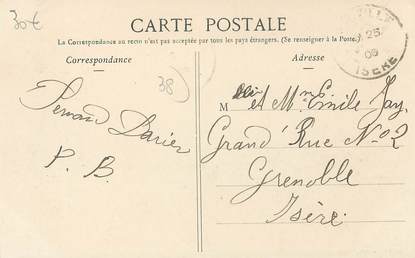 30€
CARTE POSTALE
La Correspondance au recto n'est pas acceptée par tous les pays étrangers. (Se renseigner à la Poste.)
Correspondance
Adresse
38
VILLE
25
09
ISÈRE
Fernand Darier
P. B.
M et Mme Emile Jay
Grand' Rue No 2
Grenoble
Isère.